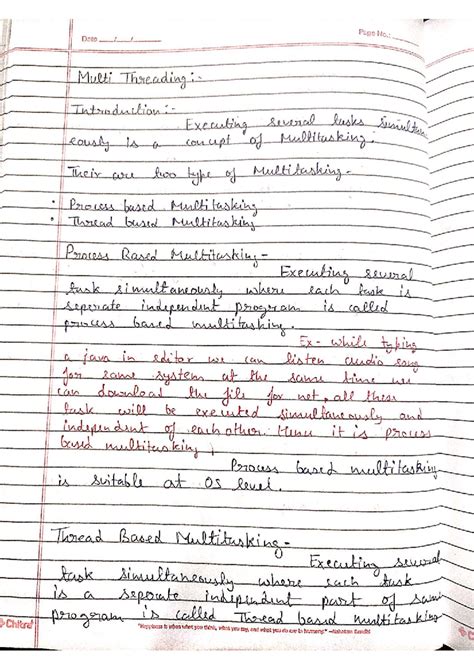 Date ___/___/___
Page No.:
Multi Threading:-
Introduction:-
Executing several tasks simultan
eously is a concept of Multitasking.
Their are two type of Multitasking-
• Process based Multitasking
• Thread based Multitasking
Process Based Multitasking-
Executing several
task simultaneously where each task is
seperate independent program is called
process based multitasking.
Ex- while typing
a java in editor we can listen audio song
for same system at the same time we
can download the file for net, all these
task will be executed simultaneously and
independent of each other. Hence it is process
based multitasking,
Process based multitasking
is suitable at OS level.
Thread Based Multitasking-
Executing several
task simultaneously where each task
is a seperate independent part of same
program is called Thread based multitasking
Chitra
"Happiness is when what you think, what you say, and what you do are in harmony" -Mahatma Gandhi